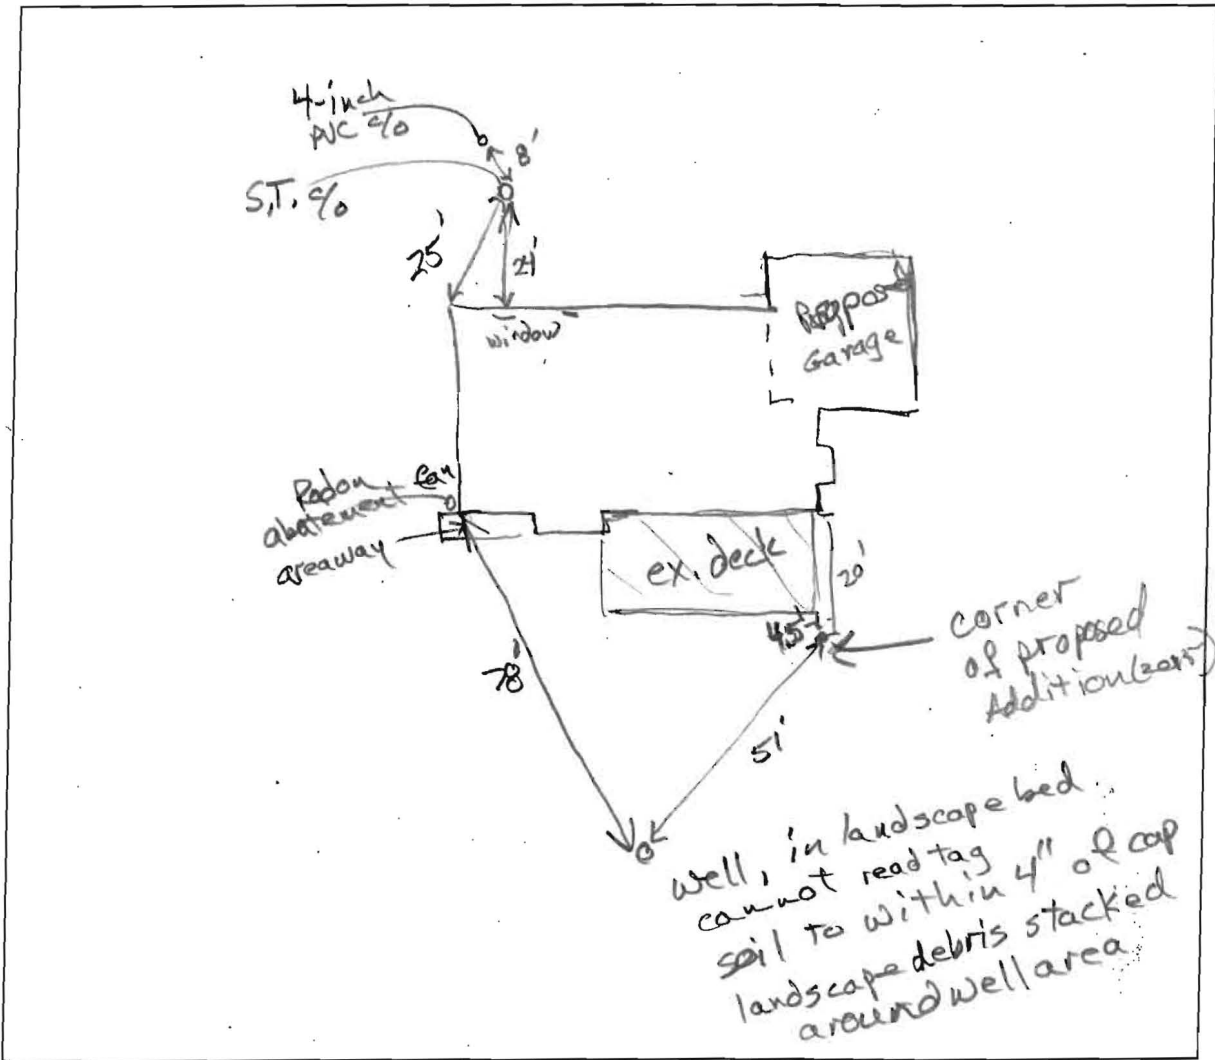 4-inch
PVC c/o
8'
S.T. c/o
25'
24'
window
Proposed
Garage
Radon fan
abatement
areaway
ex. deck
20'
4.5'
corner
of proposed
Addition (2015)
78'
51'
well, in landscape bed
cannot read tag
soil to within 4" of cap
landscape debris stacked
around well area